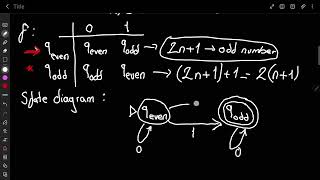 Title
δ: 0 1
q_even q_even q_odd → 2n+1 → odd number
q_odd q_odd q_even → (2n+1)+1 = 2(n+1)
State diagram :
q_even q_odd
1
0 0